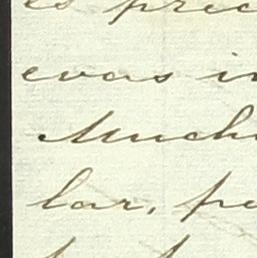 es prec
evas in
Much
lar, pe